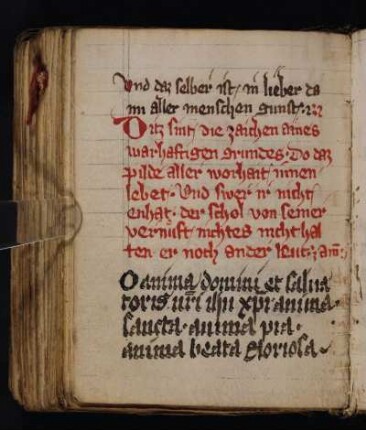 Vnd daz selber ist, in lieber da
nn aller menschen gunst.
Ditz sint, die zaichen aines
warhaftigen grundes. Do daz
pilde aller worhait, innen
lebet. Vnd swer ir nicht,
enhat, der schol von seiner
vernuft nichtes nicht hal
ten er noch ander leut. am.
O anima domini et salua
toris nr̄i ihu xp̄i anima
sancta. anima pia.
anima beata gloriosa.